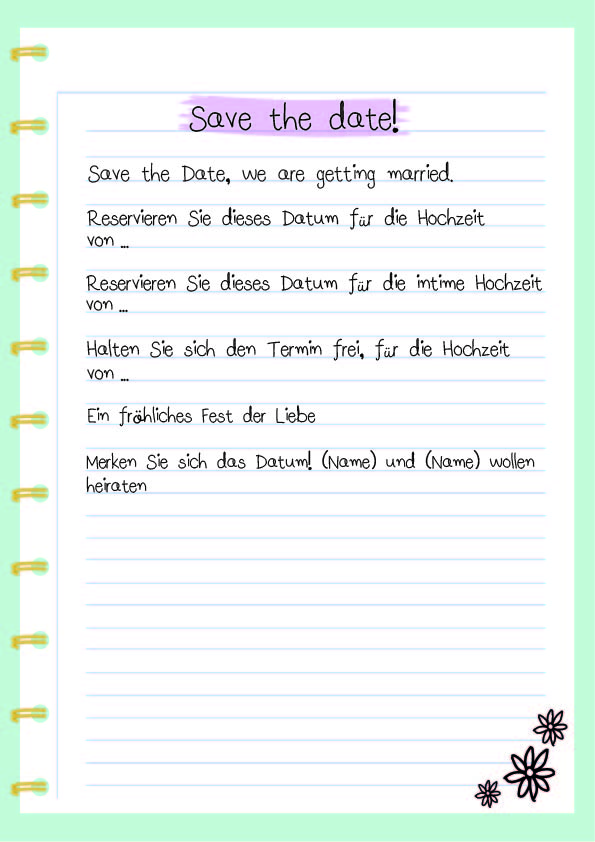 Save the date!
Save the Date, we are getting married.
Reservieren Sie dieses Datum für die Hochzeit
von ...
Reservieren Sie dieses Datum für die intime Hochzeit
von ...
Halten Sie sich den Termin frei, für die Hochzeit
von ...
Ein fröhliches Fest der Liebe
Merken Sie sich das Datum! (Name) und (Name) wollen
heiraten